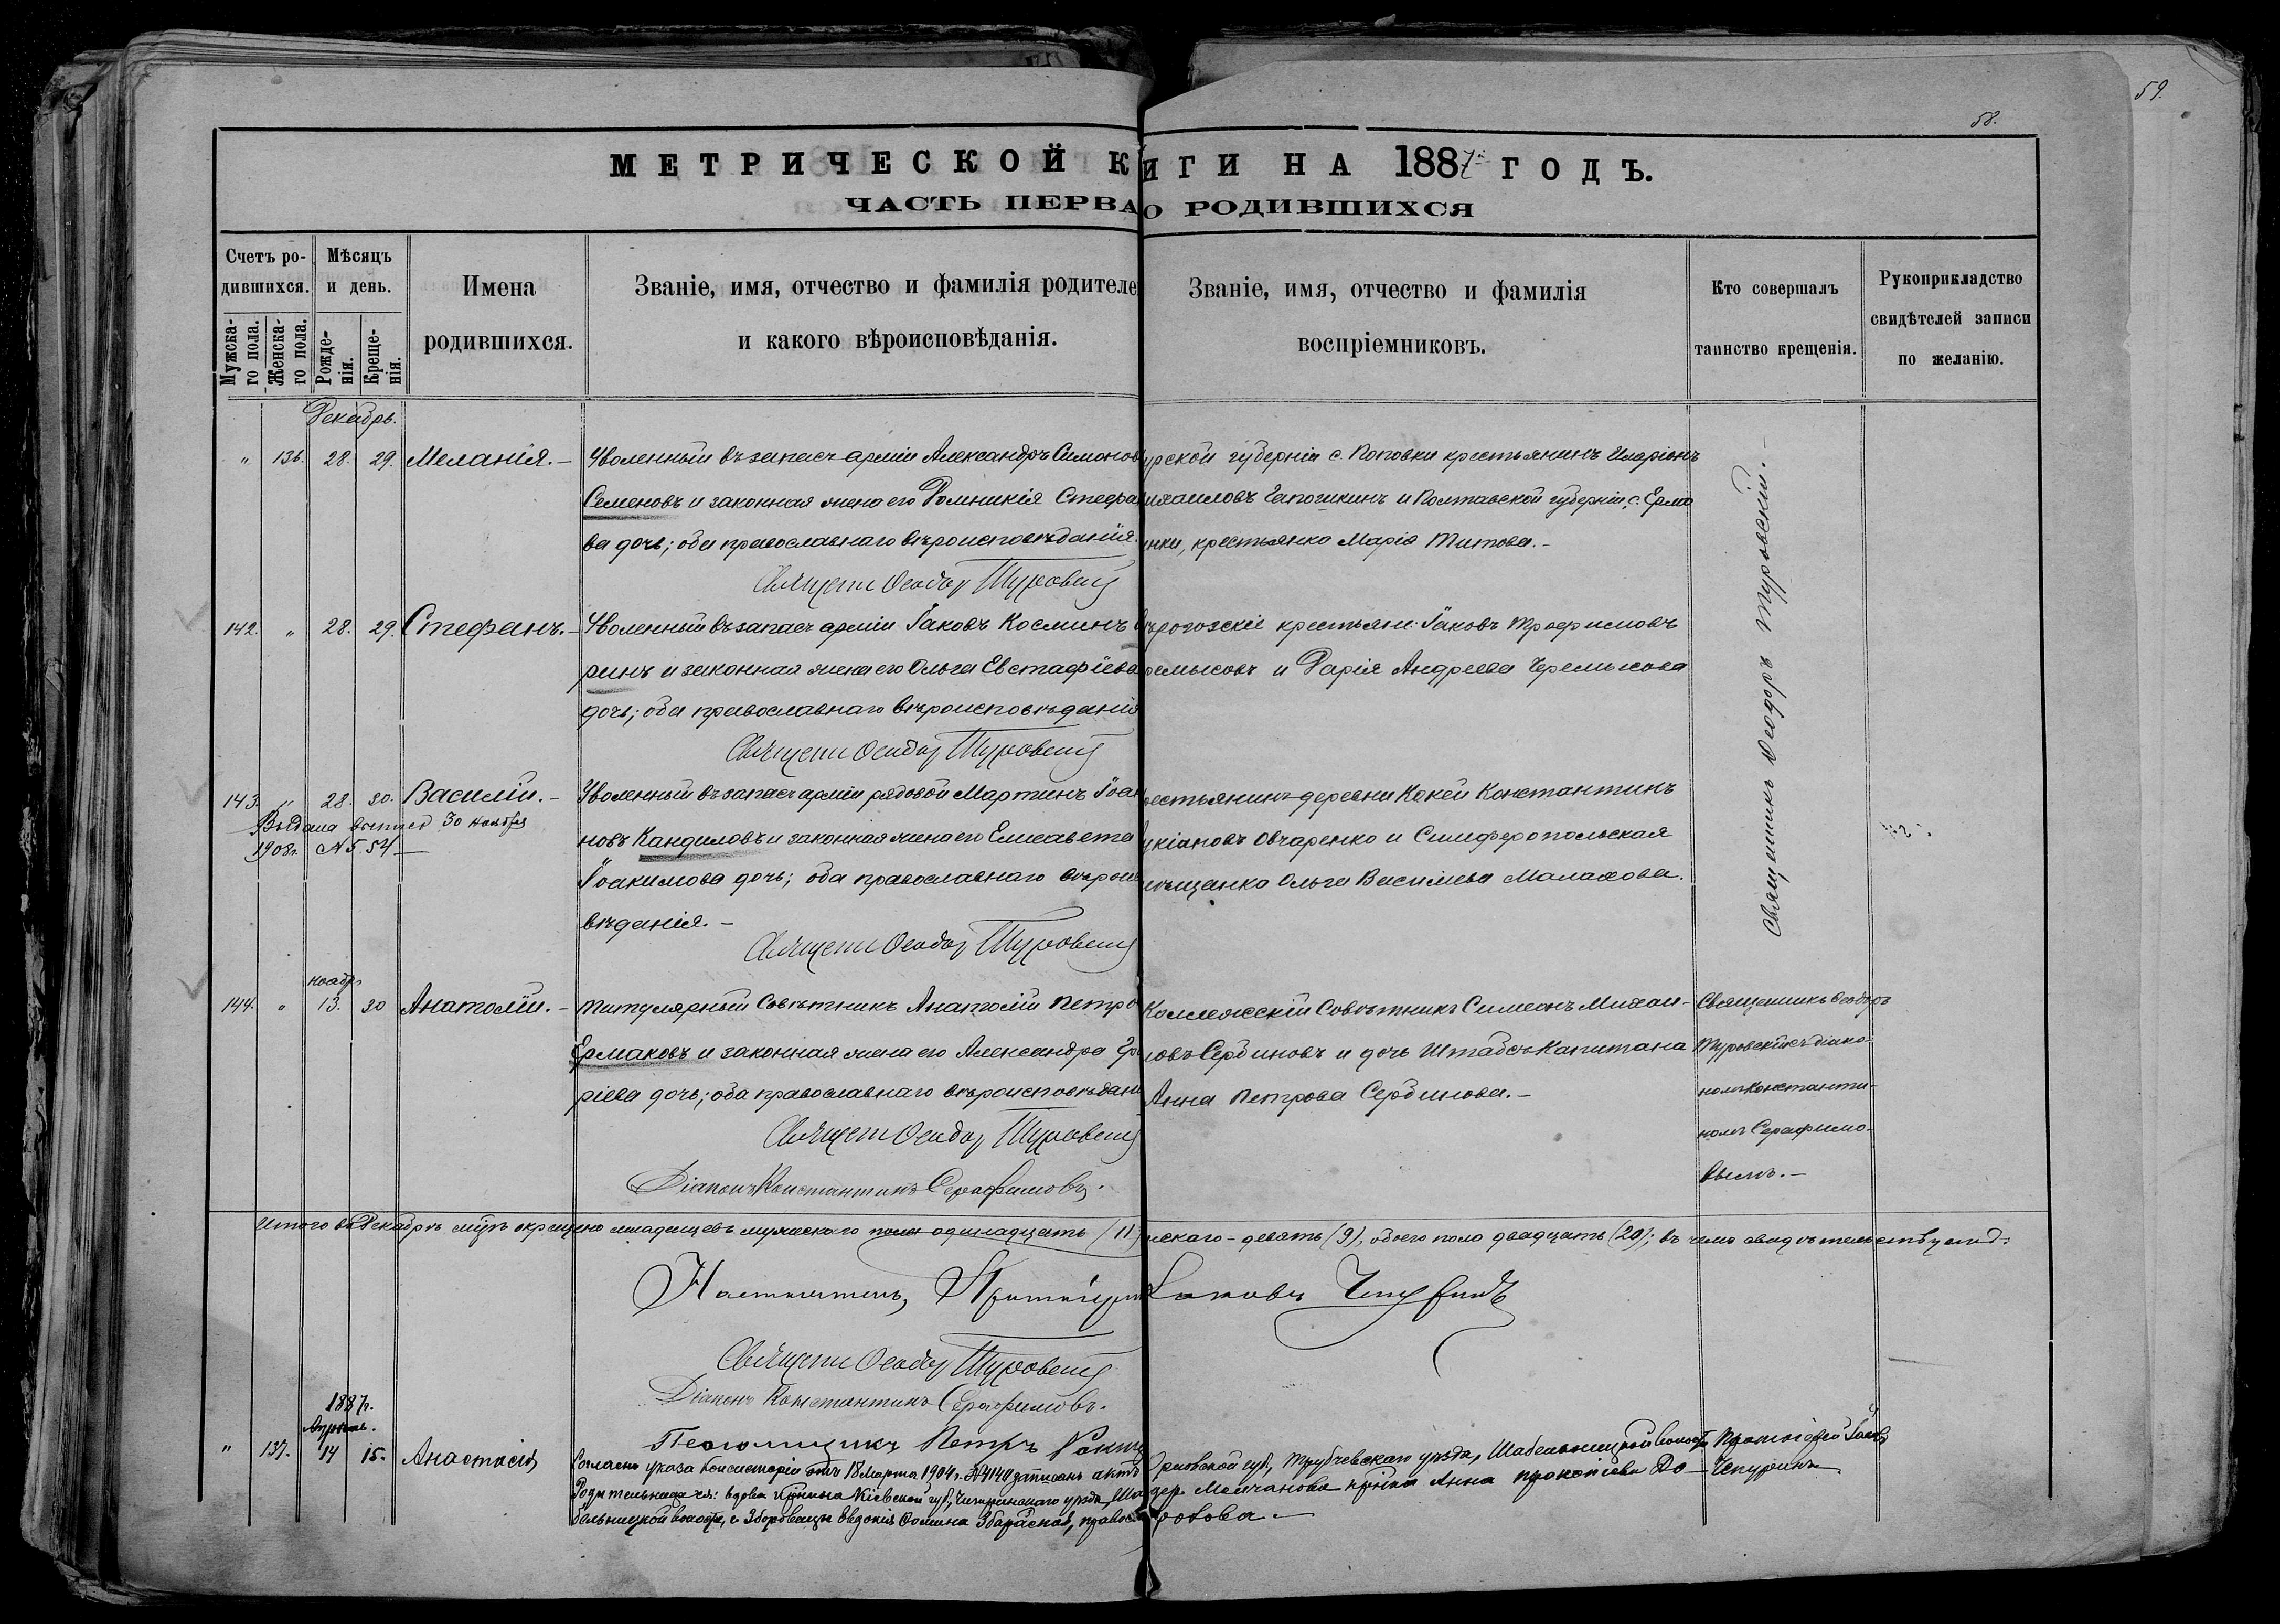 59.
58.
МЕТРИЧЕСКОЙ К ИГИ НА 1887й ГОДЪ.
ЧАСТЬ ПЕРВА О РОДИВШИХСЯ
Счетъ ро-
дившихся.
Мужска-
го пола.
Женска-
го пола.
Мѣсяцъ
и день.
Рожде-
нія.
Креще-
нія.
Имена
родившихся.
Званіе, имя, отчество и фамилія родителе
и какого вѣроисповѣданія.
Званіе, имя, отчество и фамилія
воспріемниковъ.
Кто совершалъ
таинство крещенія.
Рукоприкладство
свидѣтелей записи
по желанію.
Декабрь.
" 136. 28. 29. Меланія. –
Уволенный въ запасъ арміи Александръ Симонов
Семеновъ и законная жена его Домникія Стефа
ва дочь; оба православнаго вѣроисповѣданія.
Священ Ѳеодор Туровскій
урской губерніи с. Поповки крестьянинъ Иларіонъ
ихаиловъ и Полтавской губерніи, с. Ерма
инки, крестьянка Марія Титова. –
Священникъ Ѳеодоръ Туровскій. –
142. " 28. 29. Стефанъ. –
Уволенный въ запасъ арміи Іаковъ Косминъ
ринъ и законная жена его Ольга Евстафіева
дочь; оба православнаго вѣроисповѣданія
Священ Ѳеодор Туровскій
ѣрогозскіе крестьяне: Іаковъ Трофимовъ
ремысовъ и Дарія Андреева Черемысова
143. " 28. 30. Василій. –
Выдана выпись 30 ноября
1908г. № 554 –
Уволенный въ запасъ арміи рядовой Мартинъ Іоан
новъ Кандиловъ и законная жена его Елисавета
Іоакимова дочь; оба православнаго вѣроис
вѣданія. –
Священ Ѳеодор Туровскій
рестьянинъ деревни Кокей Константинъ
укіановъ Овчаренко и Симферопольская
мѣщанка Ольга Васильева Малахова.
ноябрь
144. " 13. 30 Анатолій. –
Титулярный Совѣтникъ Анатолій Петро
Ермаковъ и законная жена его Александра Гр
ріева дочь; оба православнаго вѣроисповѣдан
Священ Ѳеодор Туровскій
Діаконъ Константинъ Серафимовъ.
Коллежскій Совѣтникъ Симеонъ Михаи-
ловъ Сербиновъ и дочь Штабсъ-Капитана
Анна Петрова Сербинова. –
Священникъ Ѳеодоръ
Туровскій съ діако-
номъ Константи-
номъ Серафимо-
вымъ. –
Итого въ Декабрѣ мцѣ крещено младенцевъ мужескаго пола одинадцать (11) нскаго – девять (9), обоего пола двадцать (20); въ чемъ свидѣтельствуемъ:
Настоятель, Протоіерей Іаковъ Чепуринъ
Священ Ѳеодор Туровскій
Діаконъ Константинъ Серафимовъ.
Псаломщикъ Петръ
1887г.
Апрѣль.
" 137. 14 15. Анастасія
Согласно указа Консисторіи отъ 18 Марта 1904 г. № 4140 записанъ актъ
Родительница ея: вдова Кіевской губ, Чигиринскаго уѣзда, Ша
бельницкой волости, с. Зборовецъ Евдокія Ѳомина Збарская, правос
Орловской губ, Трубчевскаго уѣзда, волости
дер. Молчанова Анна Прокопіева До-
рохова. –
Протоіерей Іаковъ
Чепуринъ.